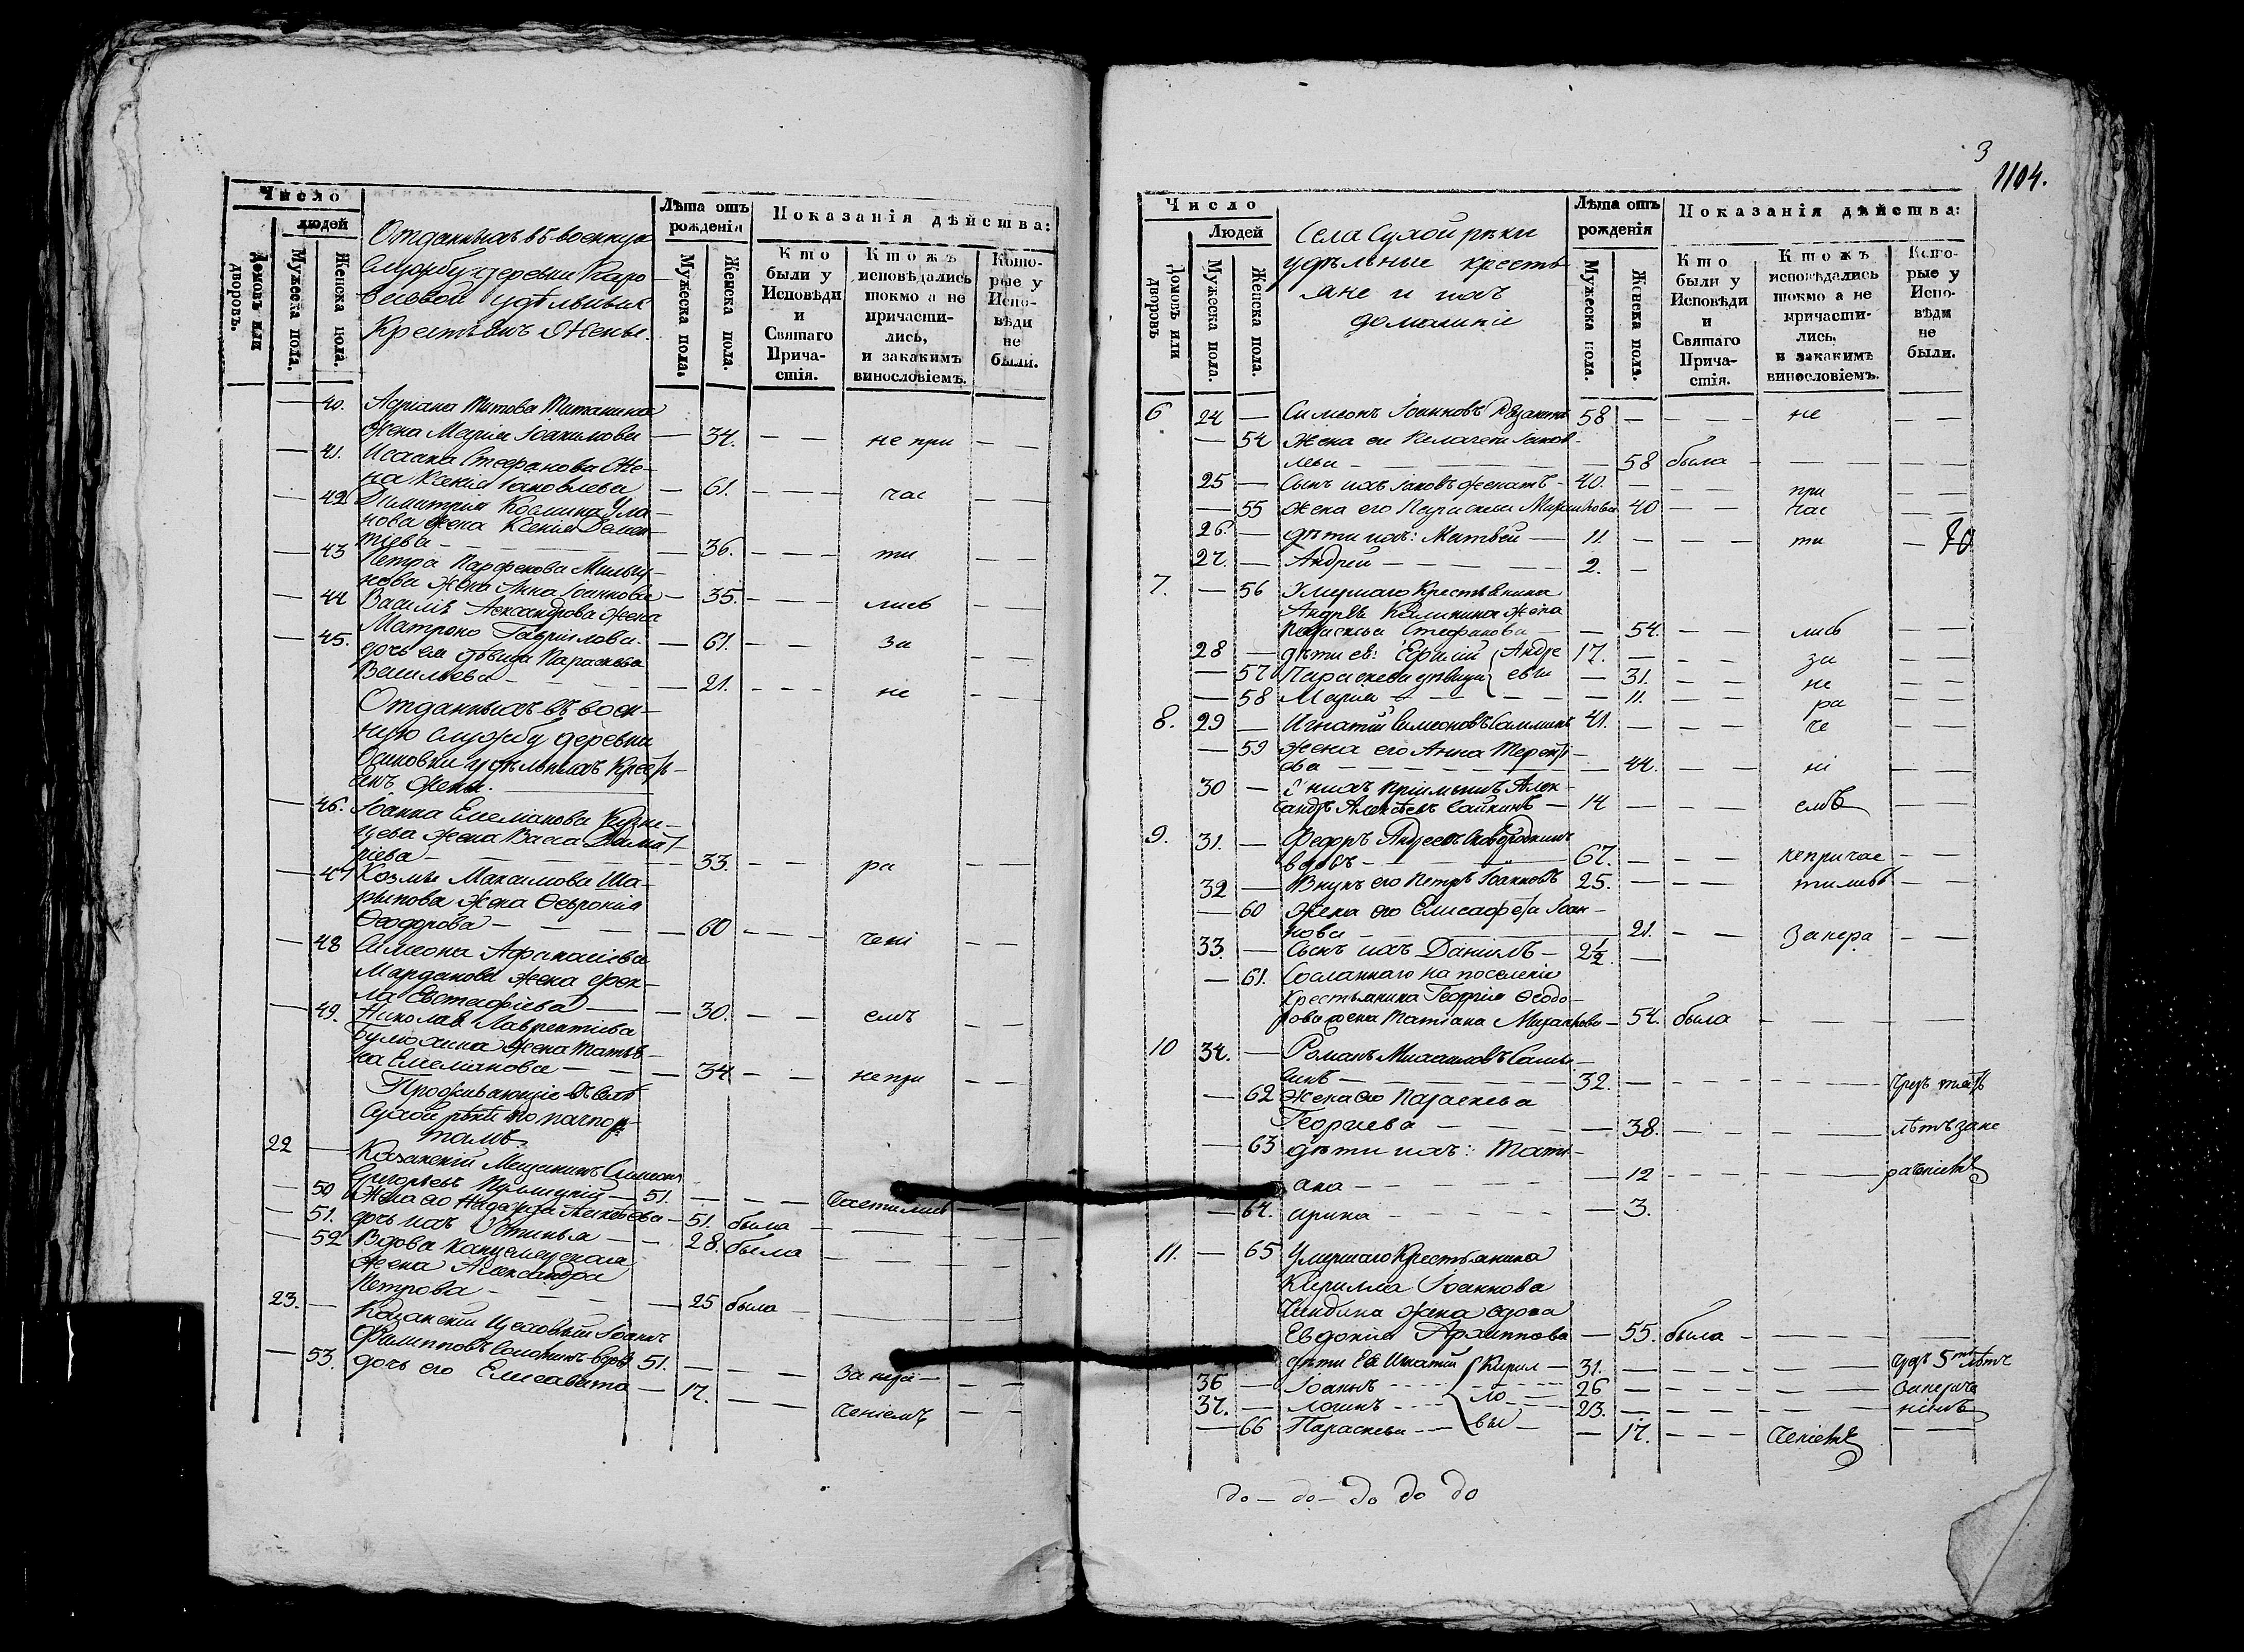 Число
людей
Домовъ или дворовъ.
Мужеска пола.
Женска пола.
Отданныхъ въ военную
службу деревни
удѣльныхъ
Крестьянъ Жены.
Лѣта отъ рожденія
Мужеска пола.
Женска пола.
Показанія дѣйства:
Кто были у Исповѣди и Святаго Прича- стія.
Ктожъ исповѣдались токмо а не причасти- лись, и закакимъ винословіемъ.
Кото- рые у Испо- вѣди не были.
— 40. Адріана Титова
жена Марія Іоакимова — 34. — — не при — —
— 41. Исаака Стефанова Же-
на Ксенія Іаковлева — 61. — — — час — —
— 42 Димитрія Космина Ула-
нова жена Ксенія Демен-
тіева — — 36. — — — ти — —
— 43 Петра Парфенова
нова жена Анна Іоаннова — 35. — — — лись — —
— 44 Василья Александрова жена
Матрона Гавріилова — 61. — — за
— 45. дочь ея дѣвица Параскева
Васильева — — 21. — — — не — —
Отданныхъ въ воен-
ную службу деревни
Осиновки удѣльныхъ Кресть-
янъ Жены.
— 46. Іоанна Емельянова Кузне-
цова жена Васса Димит-
ріева — — 33. — — ра — —
— 47 Козмы Максимова Ша-
рыпова жена Февронія
Феодорова — — 60 — — чені — —
— 48 Симеона Афанасіева
Марданова жена Фек-
ла Евстафіева — — 30. — — емъ — —
— 49. Николая Лаврентіева
жена Татья-
на Емельянова — — 34 — — непри — —
Проживающіе въ селѣ
Сухой рѣкѣ по пашпор-
тамъ
22 — Казанскій Мещанинъ Симеонъ
Григорьевъ — 51. — — — частились
— 50 Жена его Надежда Алексѣева — 51. была —
— 51. дочь ихъ Устинья — — 28. была —
— 52 Вдова канцелярская
жена Александра
Петрова — — 25 была —
23. — Казанскій Цеховый Іоаннъ
Филипповъ вдовъ 51. — — — За нера —
— 53. дочь его Елисавета — 17. — — ченіемъ — —
3
1104.
Число
Людей
Домовъ или дворовъ
Мужеска пола.
Женска пола.
Села Сухой рѣки
удѣльные кресть-
яне и ихъ
домашніе
Лѣта отъ рожденія
Мужеска пола.
Женска пола.
Показанія дѣйства:
Кто были у Исповѣди и Святаго Прича- стія.
Ктожъ исповѣдались токмо а не причасти- лись, и закакимъ винословіемъ.
Кото- рые у Испо- вѣди не были.
6 24 — Симеонъ Іоанновъ 58 — — — не — —
— 54 жена ея Пелагея Іаков-
лева — — 58 была — — —
25 — Сынъ ихъ Іаковъ женатъ — 40. — — — при — —
— 55 жена его Параскева Михайлова 40 — — час — —
26. — дѣти ихъ: Матвей — 11 — — — ти —
27. — Андрей — — 2. —
7. — 56 Умершаго Крестьянина
Андрея Калинина жена
Параскева Стефанова — — 54. — — лись — —
28 — дѣти ея: Ермій Андре 17. — — — за — —
— 57 Параскева дѣвица евы — 31. — — не — —
— 58 Марія — — 11. — — ра — —
8. 29 — Игнатій Симеоновъ 41. — — — че — —
— 59 жена его Анна Терентье-
ва — — 44. — — ні — —
30 — у нихъ пріимышъ Алек-
сандръ Алексѣевъ Сайкинъ — 14 — — — емъ — —
9. 31. — Федоръ Андреевъ Сковородкинъ
вдовъ — 67. — — — непричас — —
32 — Внукъ его Петръ Іоанновъ 25. — — — тились — —
— 60 жена его Елисафета Іоан-
нова — — 21. — — За нера — —
33. — Сынъ ихъ Даніилъ — 2½ —
— 61. Сосланнаго на поселеніе
Крестьянина Георгія Феодо-
рова жена Татіана Михайлова — 54. была — — —
10 34. — Романъ Михайловъ
— 32. — — — чрезъ пять
— 62 Жена его Параскева
Георгіева — — 38. — — — лѣтъ зане
— 63 дѣти ихъ: Тати-
ана — — 12 — — — раченіемъ
— 64. Ирина — — 3.
11. — 65 Умершаго Крестьянина
Кирилла Іоаннова
жена вдова
Евдокія Архиппова — 55. была — — —
дѣти Ея Игнатій Кирил — 31. — — — чрезъ 5ть лѣтъ
36 — Іоаннъ ло — 26 — — — занерач
37. — Логинъ вы — 23. — — — ніемъ
— 66 Параскева — — 17. — — — ченіемъ — —
до — до — до до до